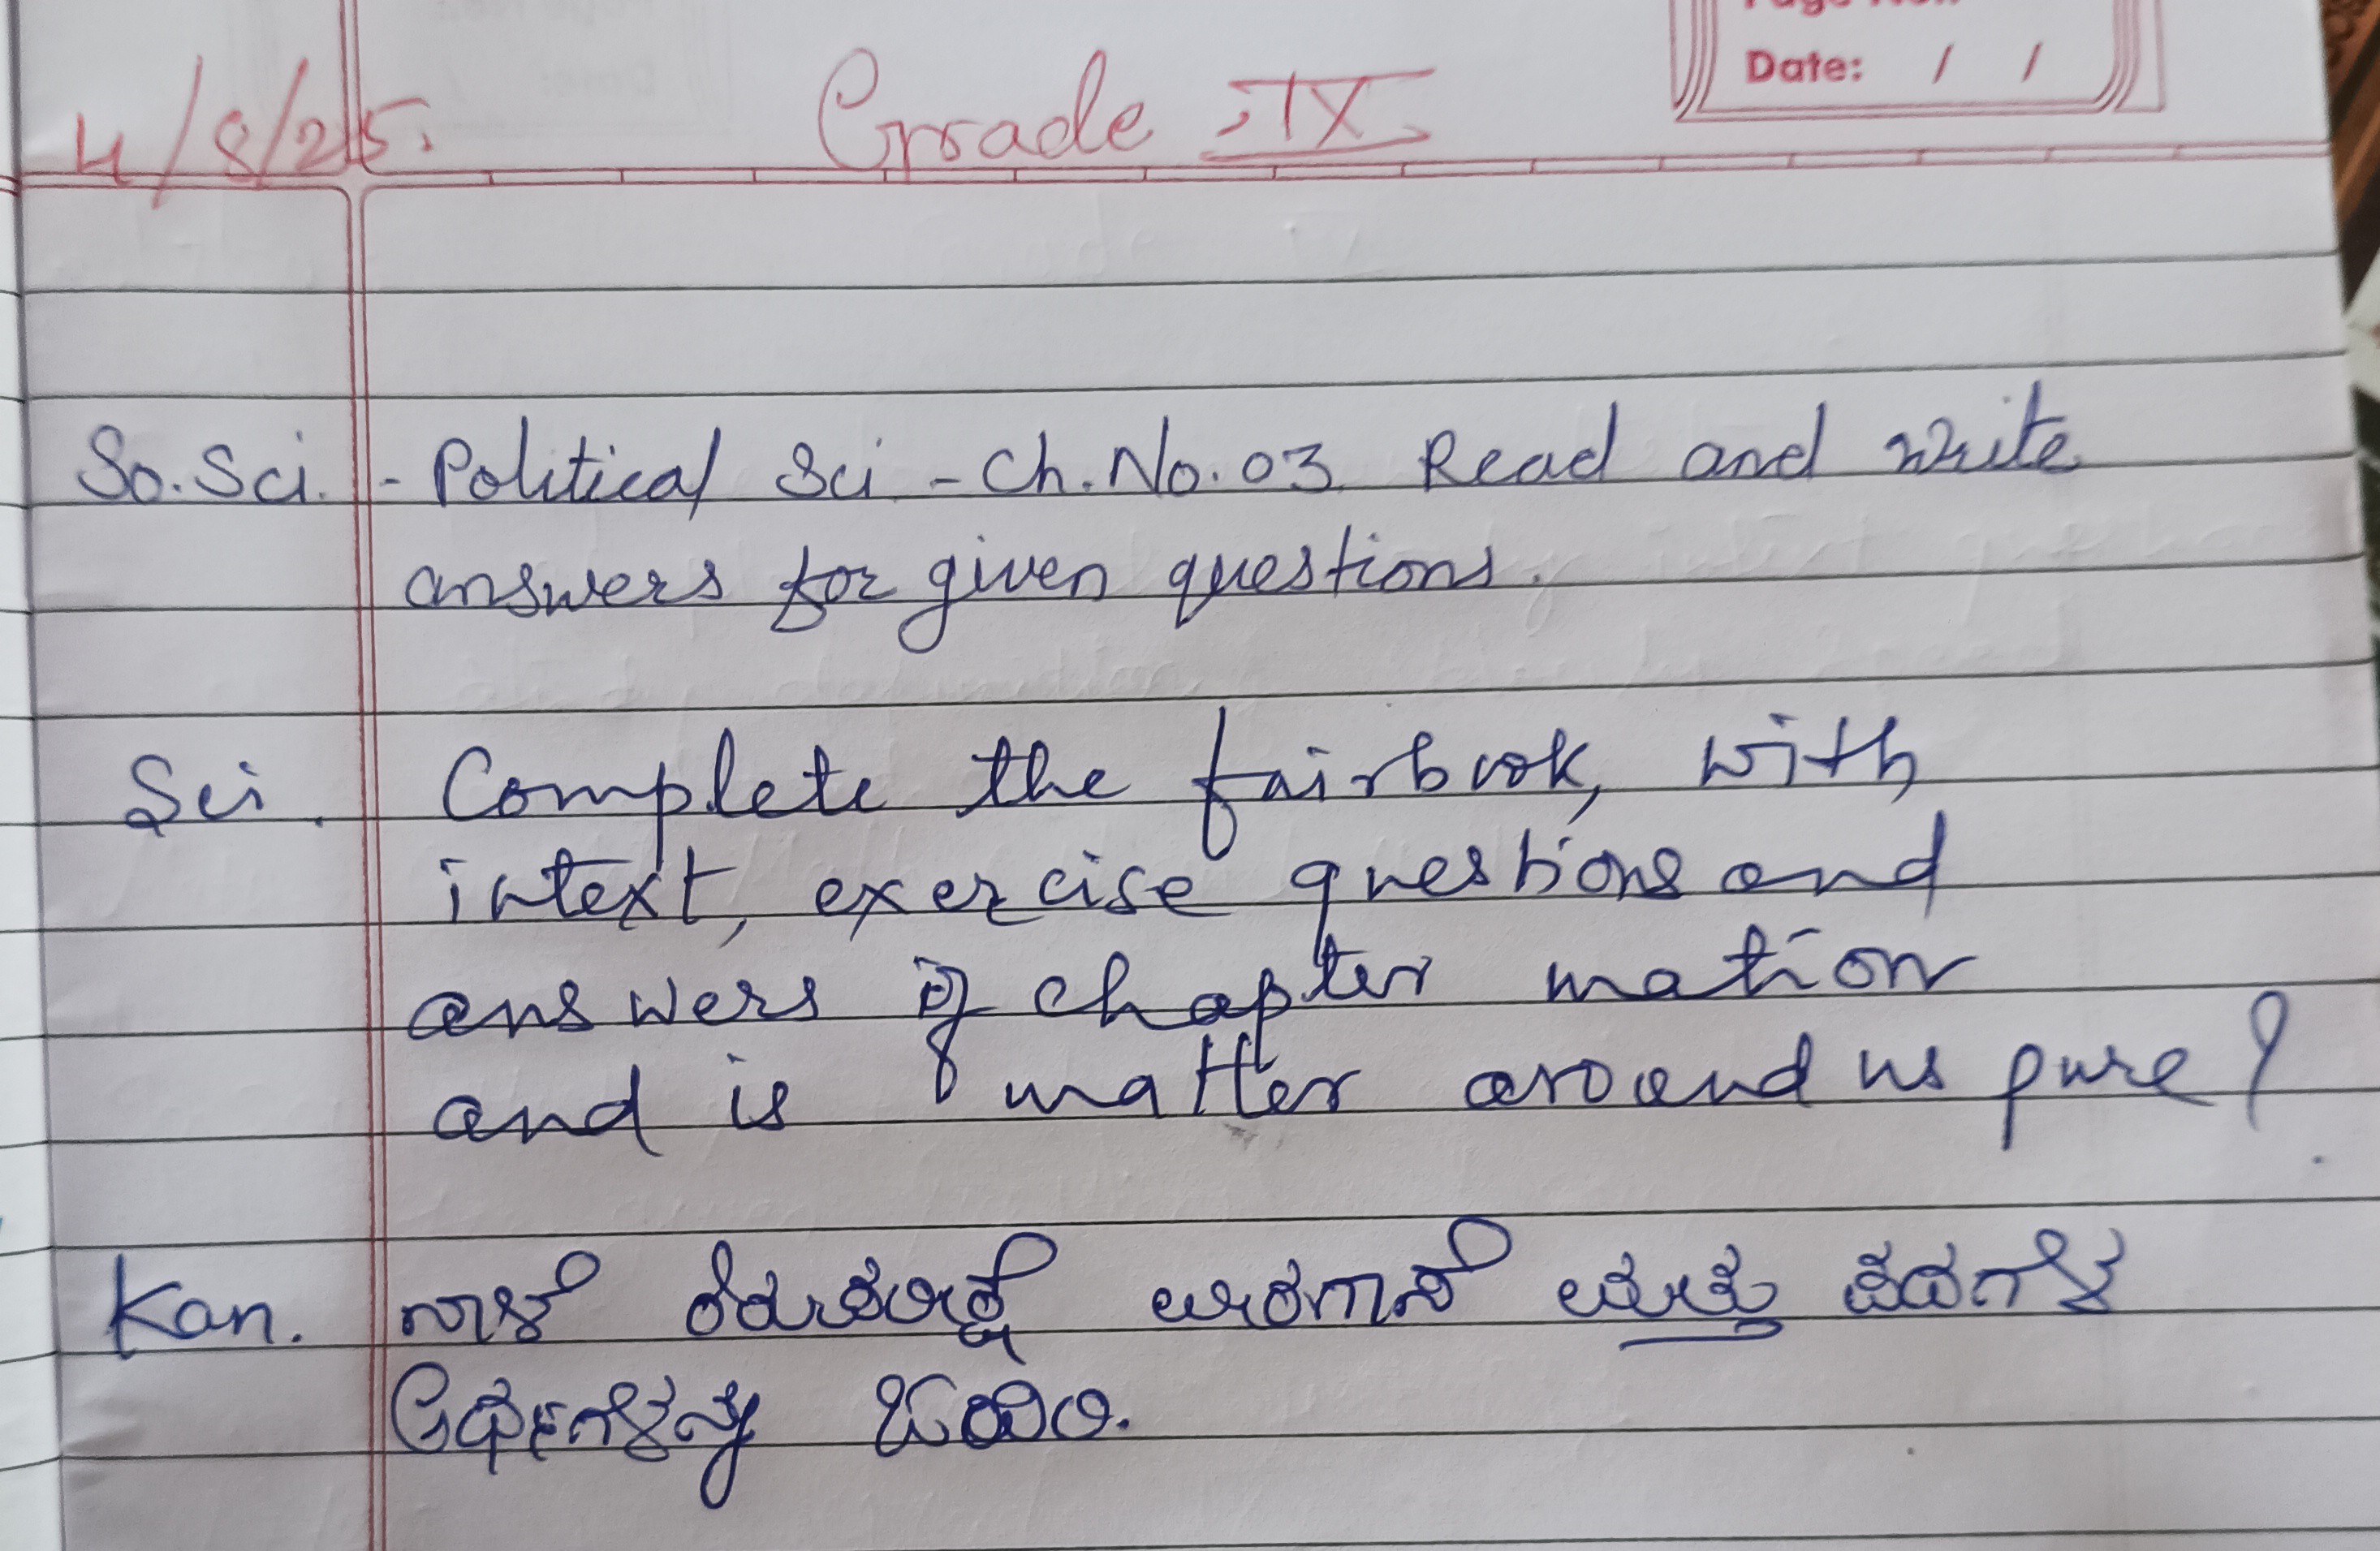 Date: / /
4/8/25. Grade IX
So.Sci. - Political Sci - Ch.No.03 Read and write
answers for given questions.
Sci. Complete the fairbook, with
intext, exercise questions and
answers of chapter mation
and is matter around us pure?
Kan. ನಾಳೆ ಮತ್ತು ಪದಗಳ
ಅರ್ಥಗಳನ್ನು ಓದಿರಿ.